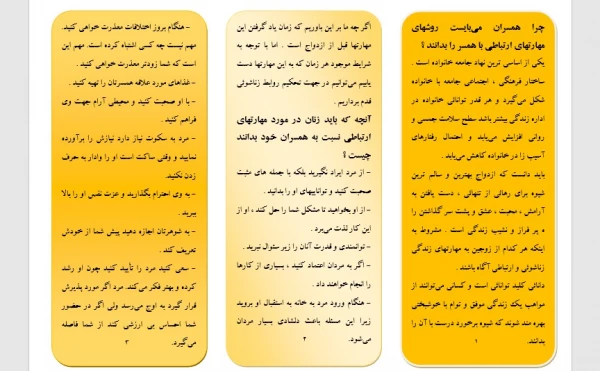 چرا همسران می‌بایست روشهای
مهارتهای ارتباطی با همسر را بدانند ؟
یکی از اساسی ترین نهاد جامعه خانواده است .
ساختار فرهنگی ، اجتماعی جامعه با خانواده
شکل می‌گیرد و هر قدر توانائی خانواده در
اداره زندگی بیشتر باشد سطح سلامت جسمی و
روانی افزایش می‌یابد و احتمال رفتارهای
آسیب زا در خانواده کاهش می‌یابد .
باید دانست که ازدواج بهترین و سالم ترین
شیوه برای رهائی از تنهائی ، دست یافتن به
آرامش ، محبت ، عشق و پشت سر گذاشتن را
ه پر فراز و نشیب زندگی است . مشروط به
اینکه هر کدام از زوجین به مهارتهای زندگی
زناشوئی و ارتباطی آگاه باشند .
دانائی کلید توانائی است و کسانی می‌توانند از
مواهب یک زندگی موفق و توام با خوشبختی
بهره مند شوند که شیوه برخورد درست با آن را
بدانند.
۱
اگر چه ما بر این باوریم که زمان یاد گرفتن این
مهارتها قبل از ازدواج است . اما با توجه به
شرایط موجود هر زمان که به این مهارتها دست
یابیم می‌توانیم در جهت تحکیم روابط زناشوئی
قدم برداریم .
آنچه که باید زنان در مورد مهارتهای
ارتباطی نسبت به همسران خود بدانند
چیست ؟
- از مرد ایراد نگیرید بلکه با جمله های مثبت
صحبت کنید و توانائیهای او را بدانید .
- از او بخواهید تا مشکل شما را حل کند ، او از
این کار لذت می‌برد .
- توانمندی و قدرت آنان را زیر سئوال نبرید .
- اگر به مردان اعتماد کنید ، بسیاری از کارها
را انجام خواهند داد .
- هنگام ورود مرد به خانه به استقبال او بروید
زیرا این مسئله باعث دلشادی بسیار مردان
می‌شود.
۲
- هنگام بروز اختلافات معذرت خواهی کنید.
مهم نیست چه کسی اشتباه کرده است. مهم این
است که شما زودتر معذرت خواهی کنید .
- غذاهای مورد علاقه همسرتان را تهیه کنید .
- با او صحبت کنید و محیطی آرام جهت وی
فراهم کنید .
- مرد به سکوت نیاز دارد نیازش را برآورده
نمایید و وقتی ساکت است او را وادار به حرف
زدن نکنید.
- به وی احترام بگذارید و عزت نفس او را بالا
ببرید .
- به شوهرتان اجازه دهید پیش شما از خودش
تعریف کند .
- سعی کنید مرد را تأیید کنید چون او رشد
کرده و بهتر فکر می‌کند. مرد اگر مورد پذیرش
قرار گیرد به اوج می‌رسد ولی اگر در حضور
شما احساس بی ارزشی کند از شما فاصله
می‌گیرد.
۳